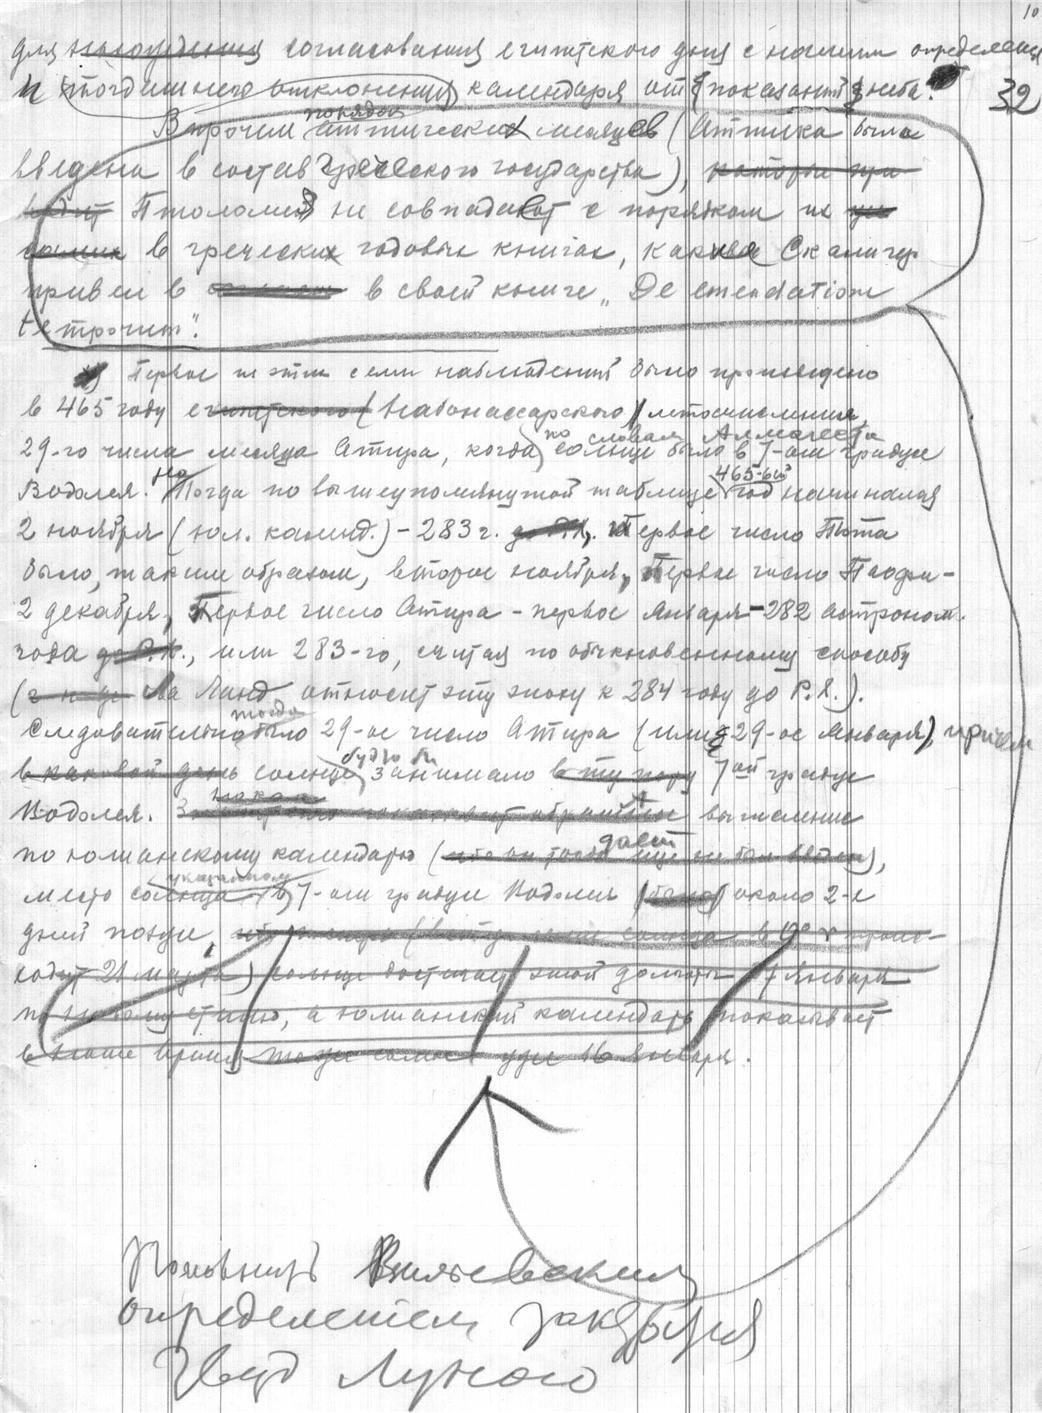 10
для согласования египетского дня с нашим определения
и тогдашнего отклонения календаря от показаний неба.
32
порядок
Впрочем аттических месяцев (Аттика была
введена в состав греческого государства), которые при-
водит Птоломей не совпадает с порядком их
в греческих годовых книгах, какие Скалигер
привел в в своей книге „De emendatione
temporum“.
Первое из этих семи наблюдений было произведено
в 465 году египетского (Набонассарского) летосчисления
по словам Алмагеста
29-го числа месяца Атира, когда солнце было в 7-ом градусе
но 465-ый
Водолея. Тогда по вышеупомянутой таблице год начинался
2 ноября (юл. календ.) – 283 г. до Р.Х. Первое число Тота
было, таким образом, второе ноября, Первое число Паофи –
2 декабря, Первое число Атира – первое Января – 282 астроном.
года до Р.Х., или 283-го, считая по обыкновенному способу
(Ла Ланд относит эту эпоху к 284 году до Р.Х.).
тогда
Следовательно было 29-ое число Атира (или 29-ое Января), причем
будто бы
в каковой день солнце занимало в ту пору 7ой градус
Водолея. вычисление
дает
по юлианскому календарю (что он тогда еще не был введен),
указанном
место солнца в 7-ом градусе Водолея (было) около 2-х
дней позже,
21 марта) солнце достигает этой долготы 17 Января
по новому стилю, а юлианский календарь показывает
в наше время тоже самое уже 16 Января.
Пополнить Вильевским
определением закрытия
звезд Луною